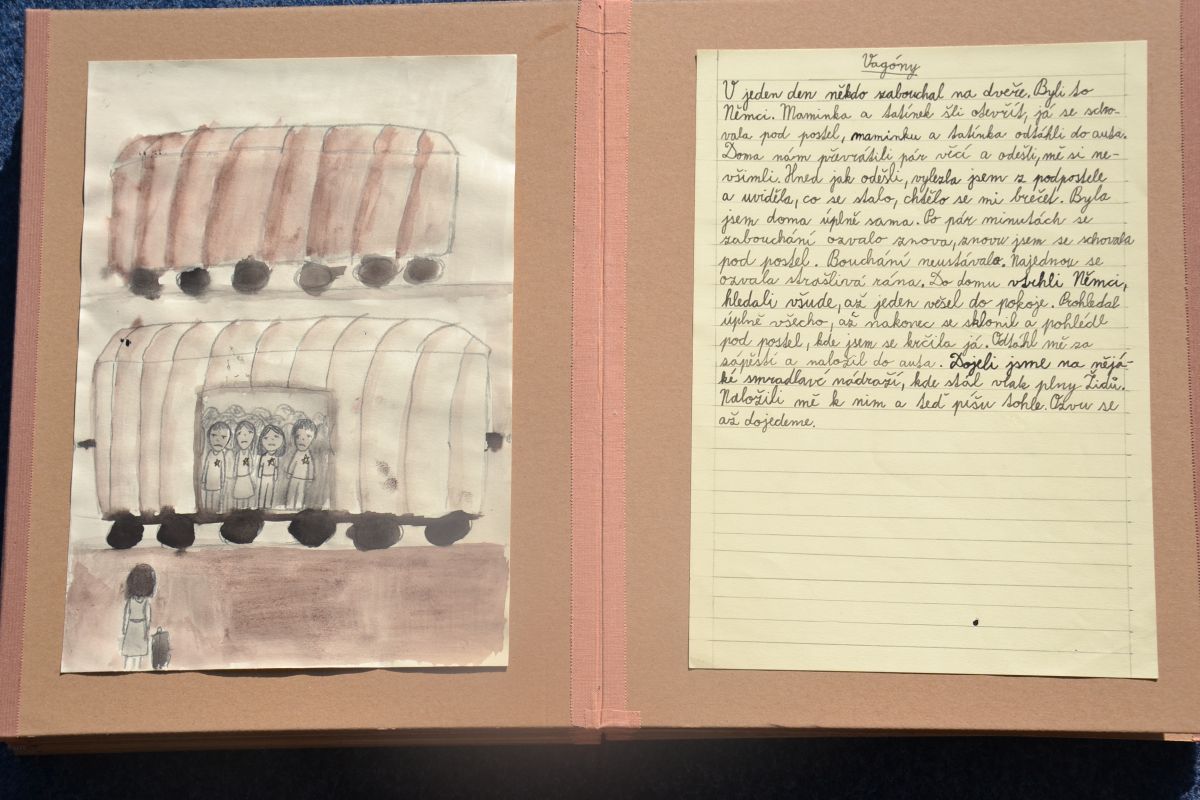 Vagóny
V jeden den někdo zabouchal na dveře. Byli to
Němci. Maminka a tatínek šli otevřít, já se scho-
vala pod postel, maminku a tatínka odtáhli do auta.
Doma nám převrátili pár věcí a odešli, mě si ne-
všimli. Hned jak odešli, vylezla jsem z podpostele
a uviděla, co se stalo, chtělo se mi brečet. Byla
jsem doma úplně sama. Po pár minutách se
zabouchání ozvalo znova, znovu jsem se schovala
pod postel. Bouchání neustávalo. Najednou se
ozvala strašlivá rána. Do domu vtrhli Němci,
hledali všude, až jeden vešel do pokoje. Prohledal
úplně všecho, až nakonec se sklonil a pohlédl
pod postel, kde jsem se krčila já. Odtáhl mě za
zápěstí a naložil do auta. Dojeli jsme na nějá-
ké smradlavé nádraží, kde stál vlak plny Židů.
Naložili mě k nim a teď píšu tohle. Ozvu se
až dojedeme.